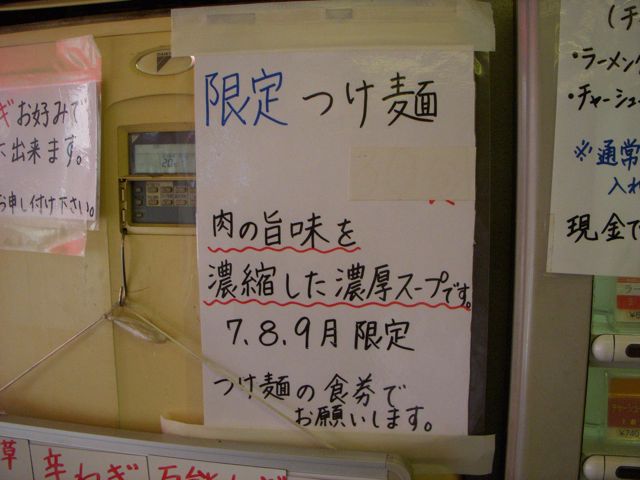 限定 つけ麺
肉の旨味を
濃縮した濃厚スープです。
7.8.9月 限定
つけ麺の食券で
お願いします。
お好みで
出来ます。
お申し付け下さい。
・ラーメン
・チャーシュー
※通常
入れ
現金で
草
辛ねぎ
DAIKIN
20